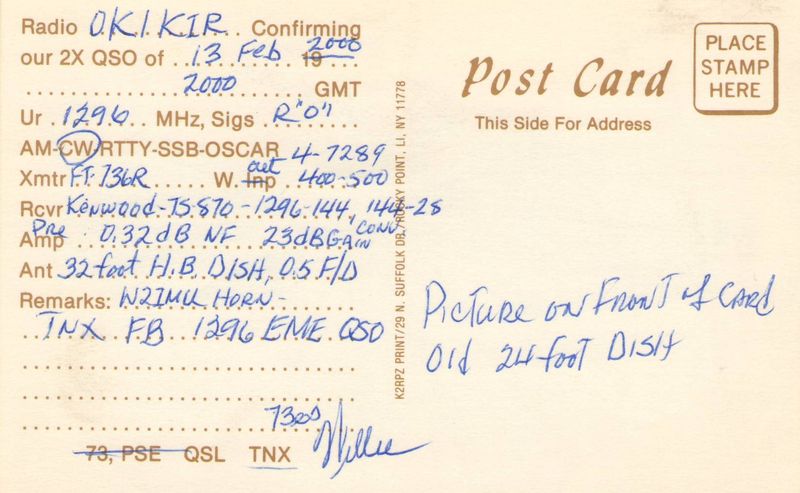 Radio OK1KIR Confirming
our 2X QSO of 13 Feb 19 2000
2000 GMT
Ur 1296 MHz, Sigs R"O"
AM-CW-RTTY-SSB-OSCAR 4-7289
Xmtr FT-736R W. Inp out 400-500
Rcvr Kenwood-TS-870-1296-144, 144-28
Pre Amp 0.32dB NF 23dBGain CONV
Ant 32foot H.B. DISH, 0.5 F/D
Remarks: W2IMU HORN-
TNX FB 1296 EME QSO
73es
73, PSE QSL TNX Willie
K2RPZ PRINT/29 N. SUFFOLK DR./ROCKY POINT, LI, NY 11778
Post Card
This Side For Address
PLACE
STAMP
HERE
PICTURE ON FRONT of CARD
Old 24foot DISH